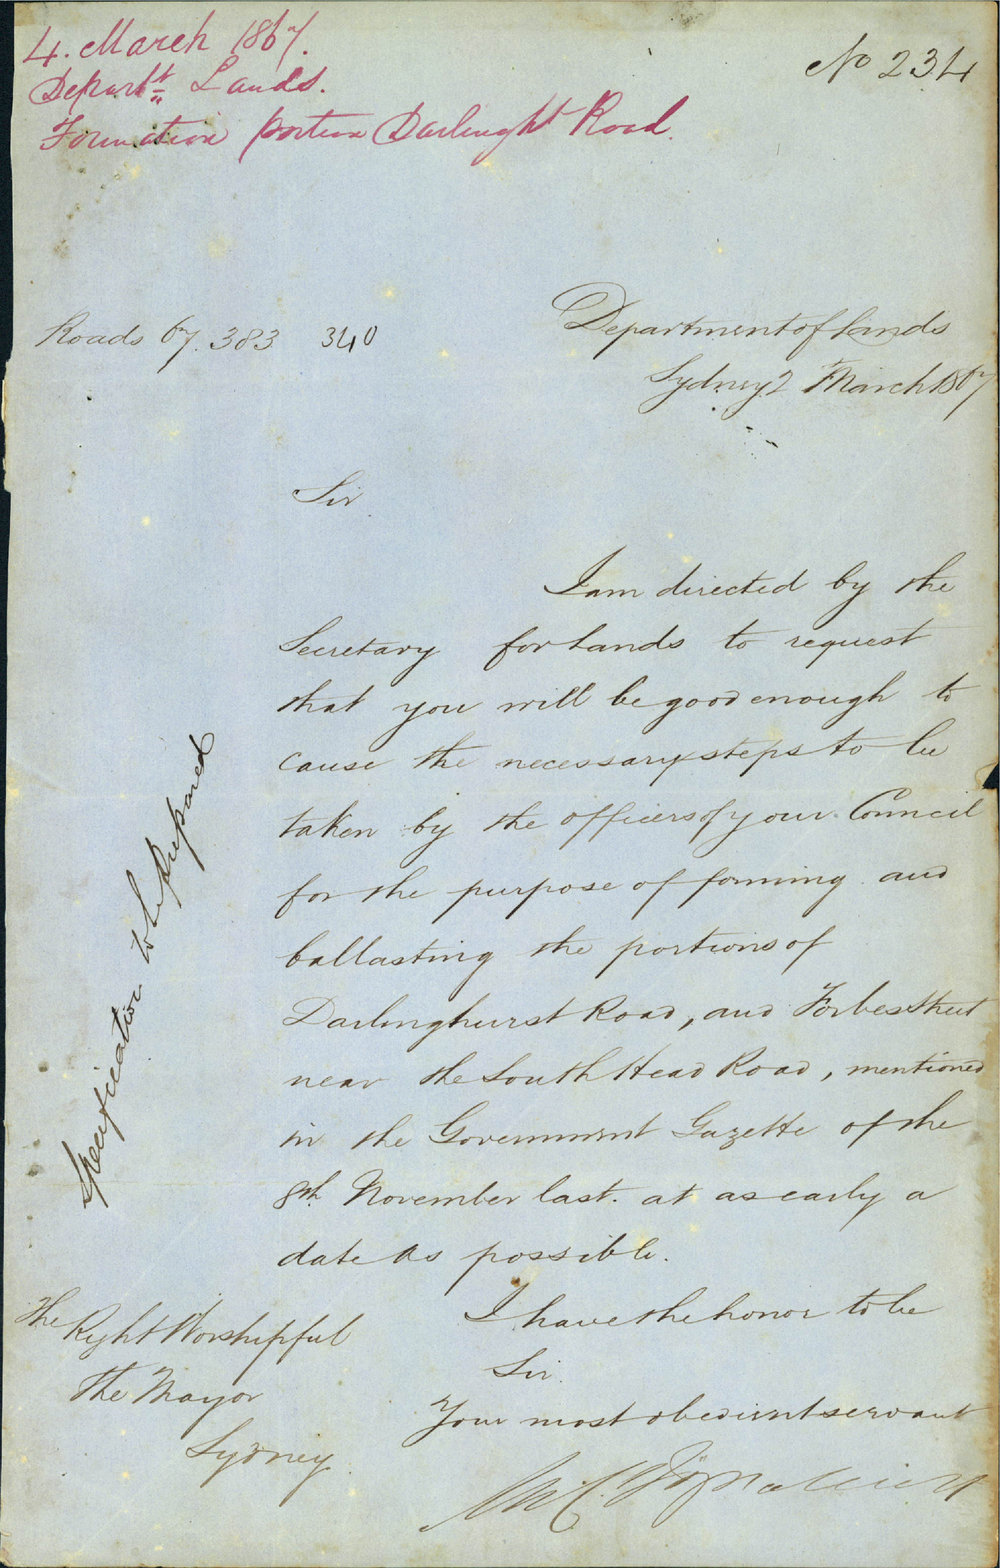 4. March 1867.
Departt. Lands.
Formation portion Darlinght Road.
No 234
Roads 67. 383 340
Department of Lands
Sydney 2 March 1867
Sir
I am directed by the
Secretary for Lands to request
that you will be good enough to
cause the necessary steps to be
taken by the officers of your Council
for the purpose of forming and
ballasting the portions of
Darlinghurst Road, and Forbes Street
near the South Head Road, mentioned
in the Government Gazette of the
8th. November last. at as early a
date as possible.
I have the honor to be
Sir
Your most obedient servant
Specification to be prepared
The Right Worshipful
The Mayor
Sydney